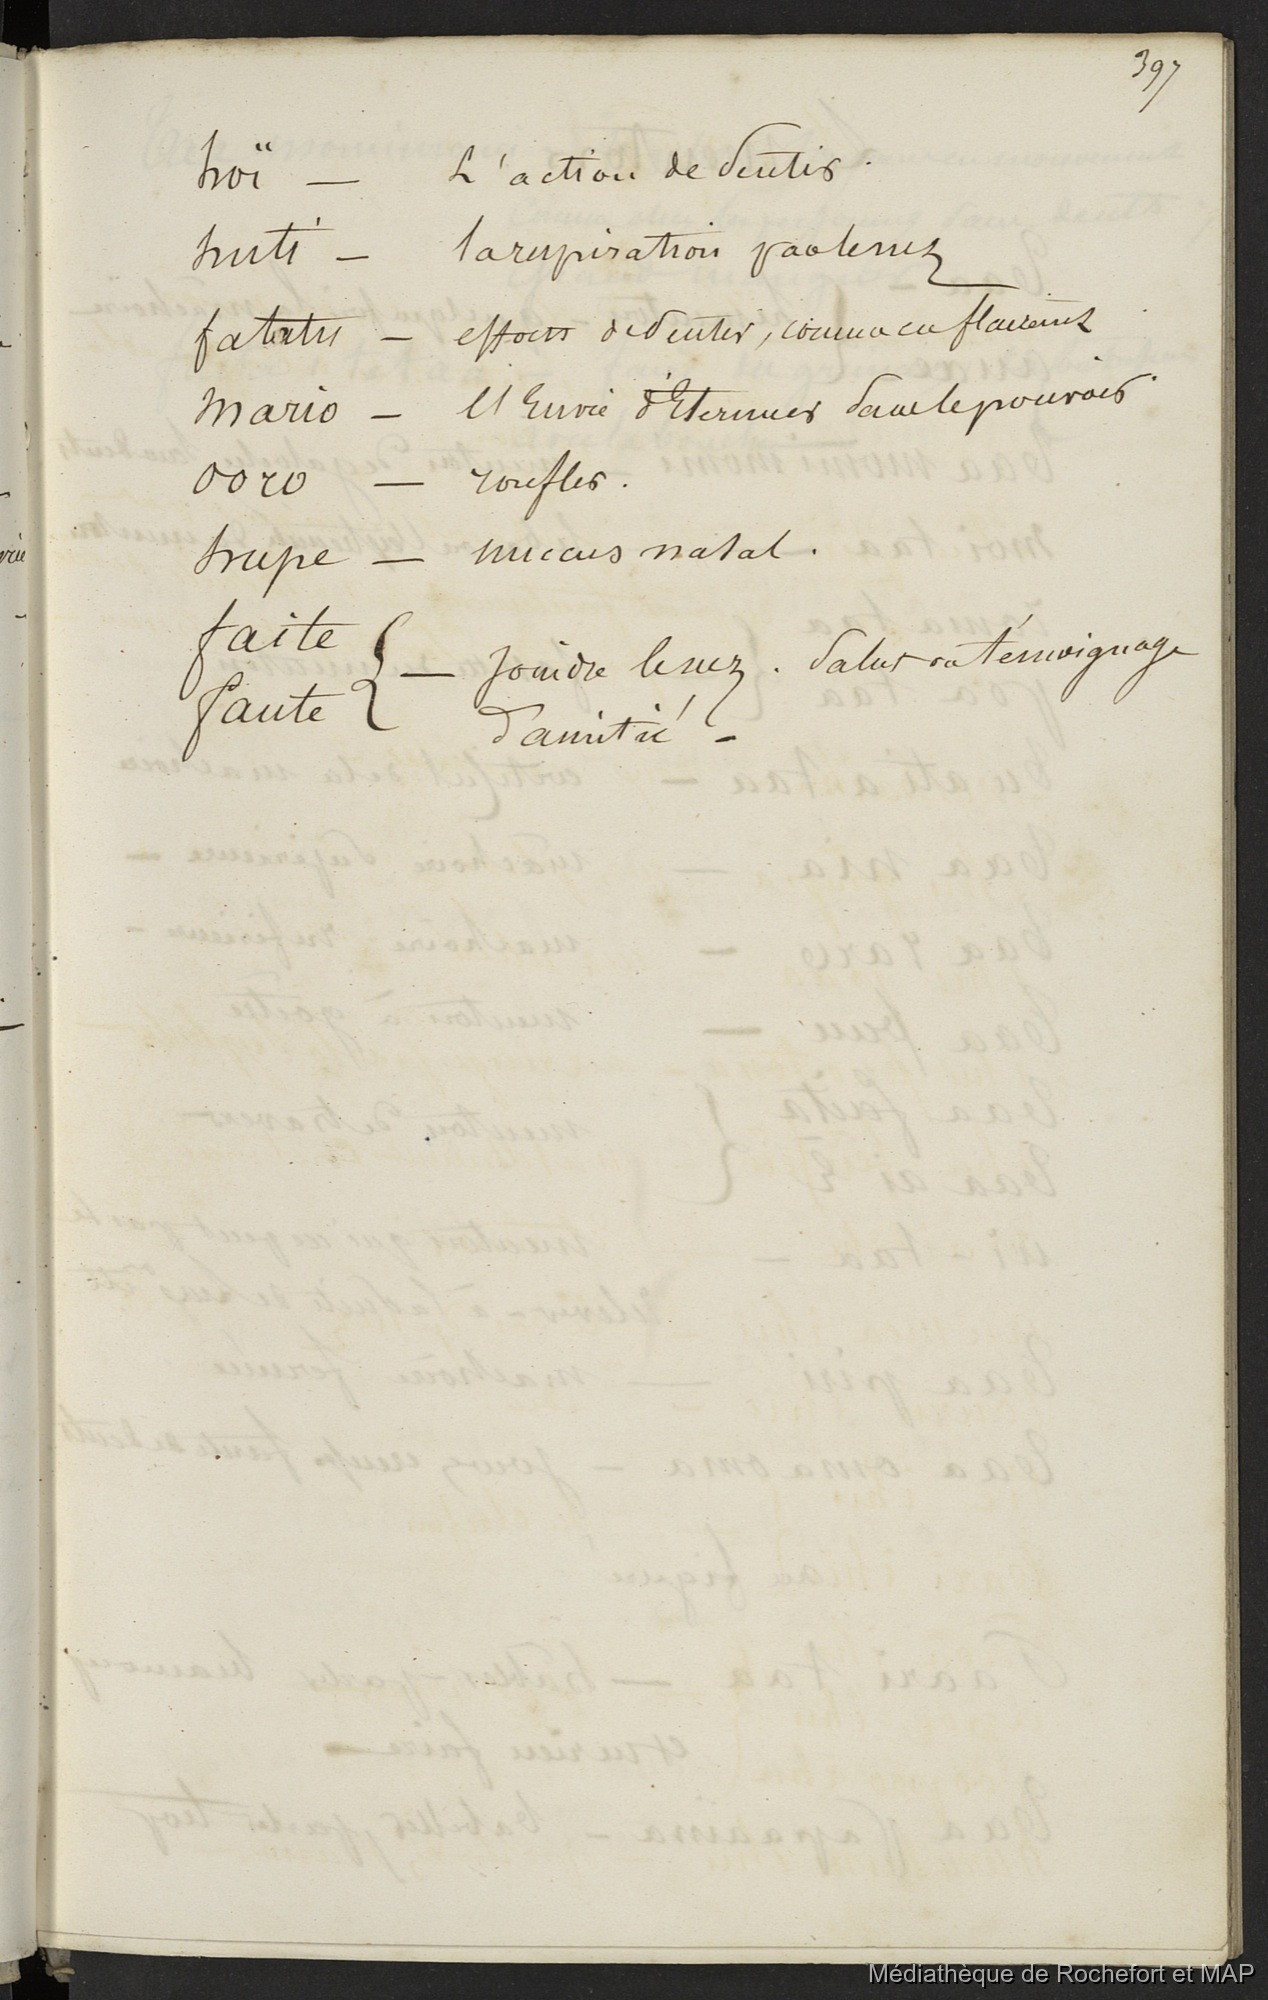 397
hoï — L'action de sentir.
huti — la respiration par le nez
fatutu — effort de sentir, comme en flairant
mario — l'Envie d'Eternuer sans le pouvoir.
ooro — ronfler.
hupe — muccus nasal.
faite
faute } — joindre le nez. Salut ou témoignage
d'amitié —
Médiathèque de Rochefort et MAP